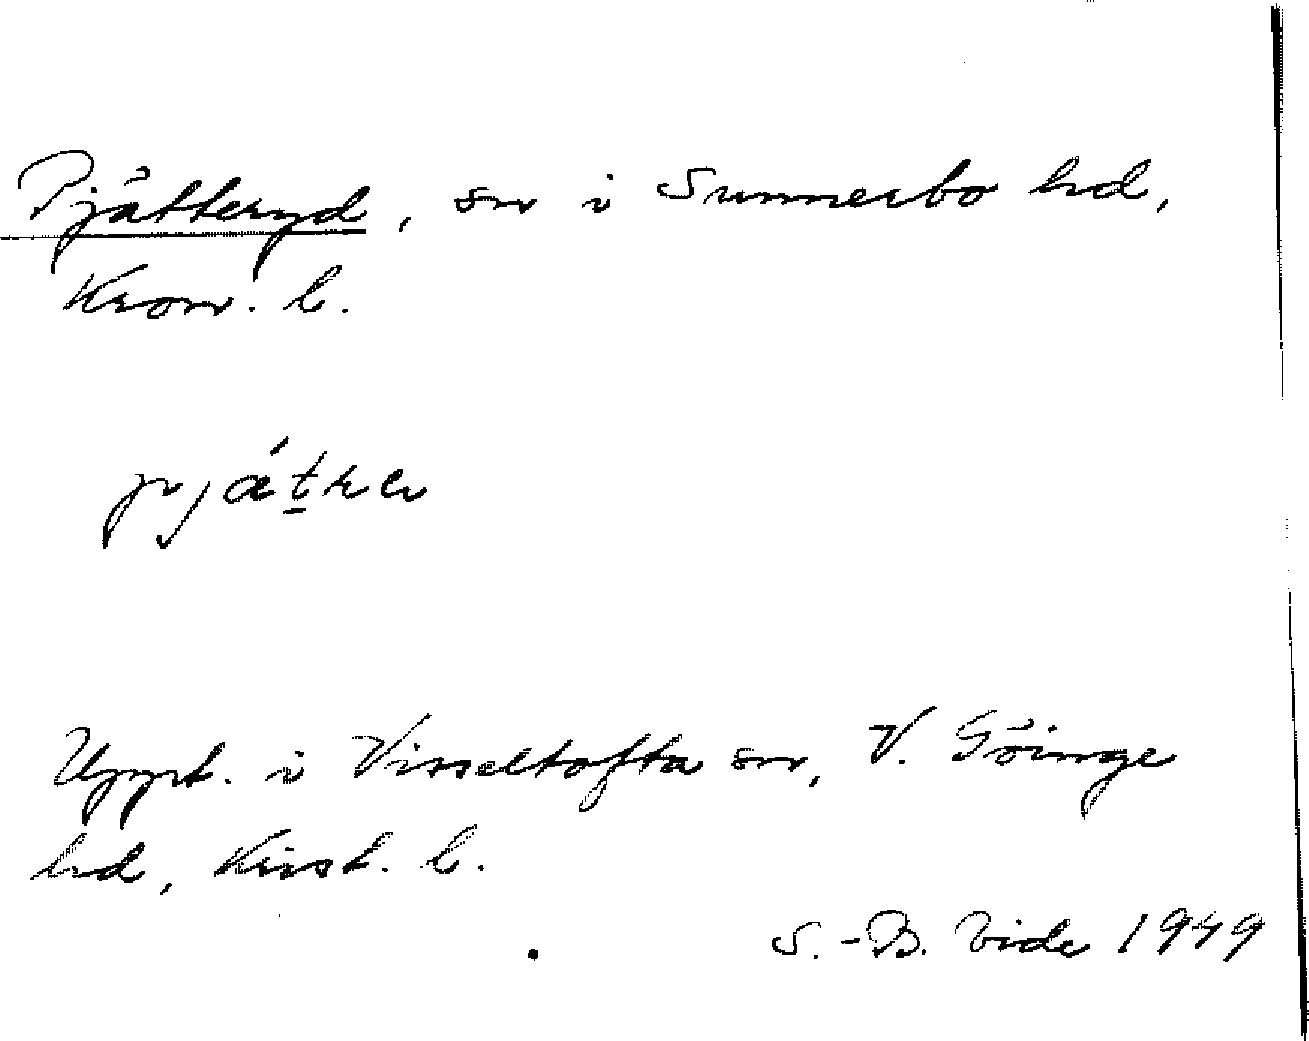 Pjätteryd, sn i Sunnerbo hd,
Kron. l.
Uppt. i Visseltofta sn, V. Göinge
hd, Krist. l.
S.-B. Vide 1949